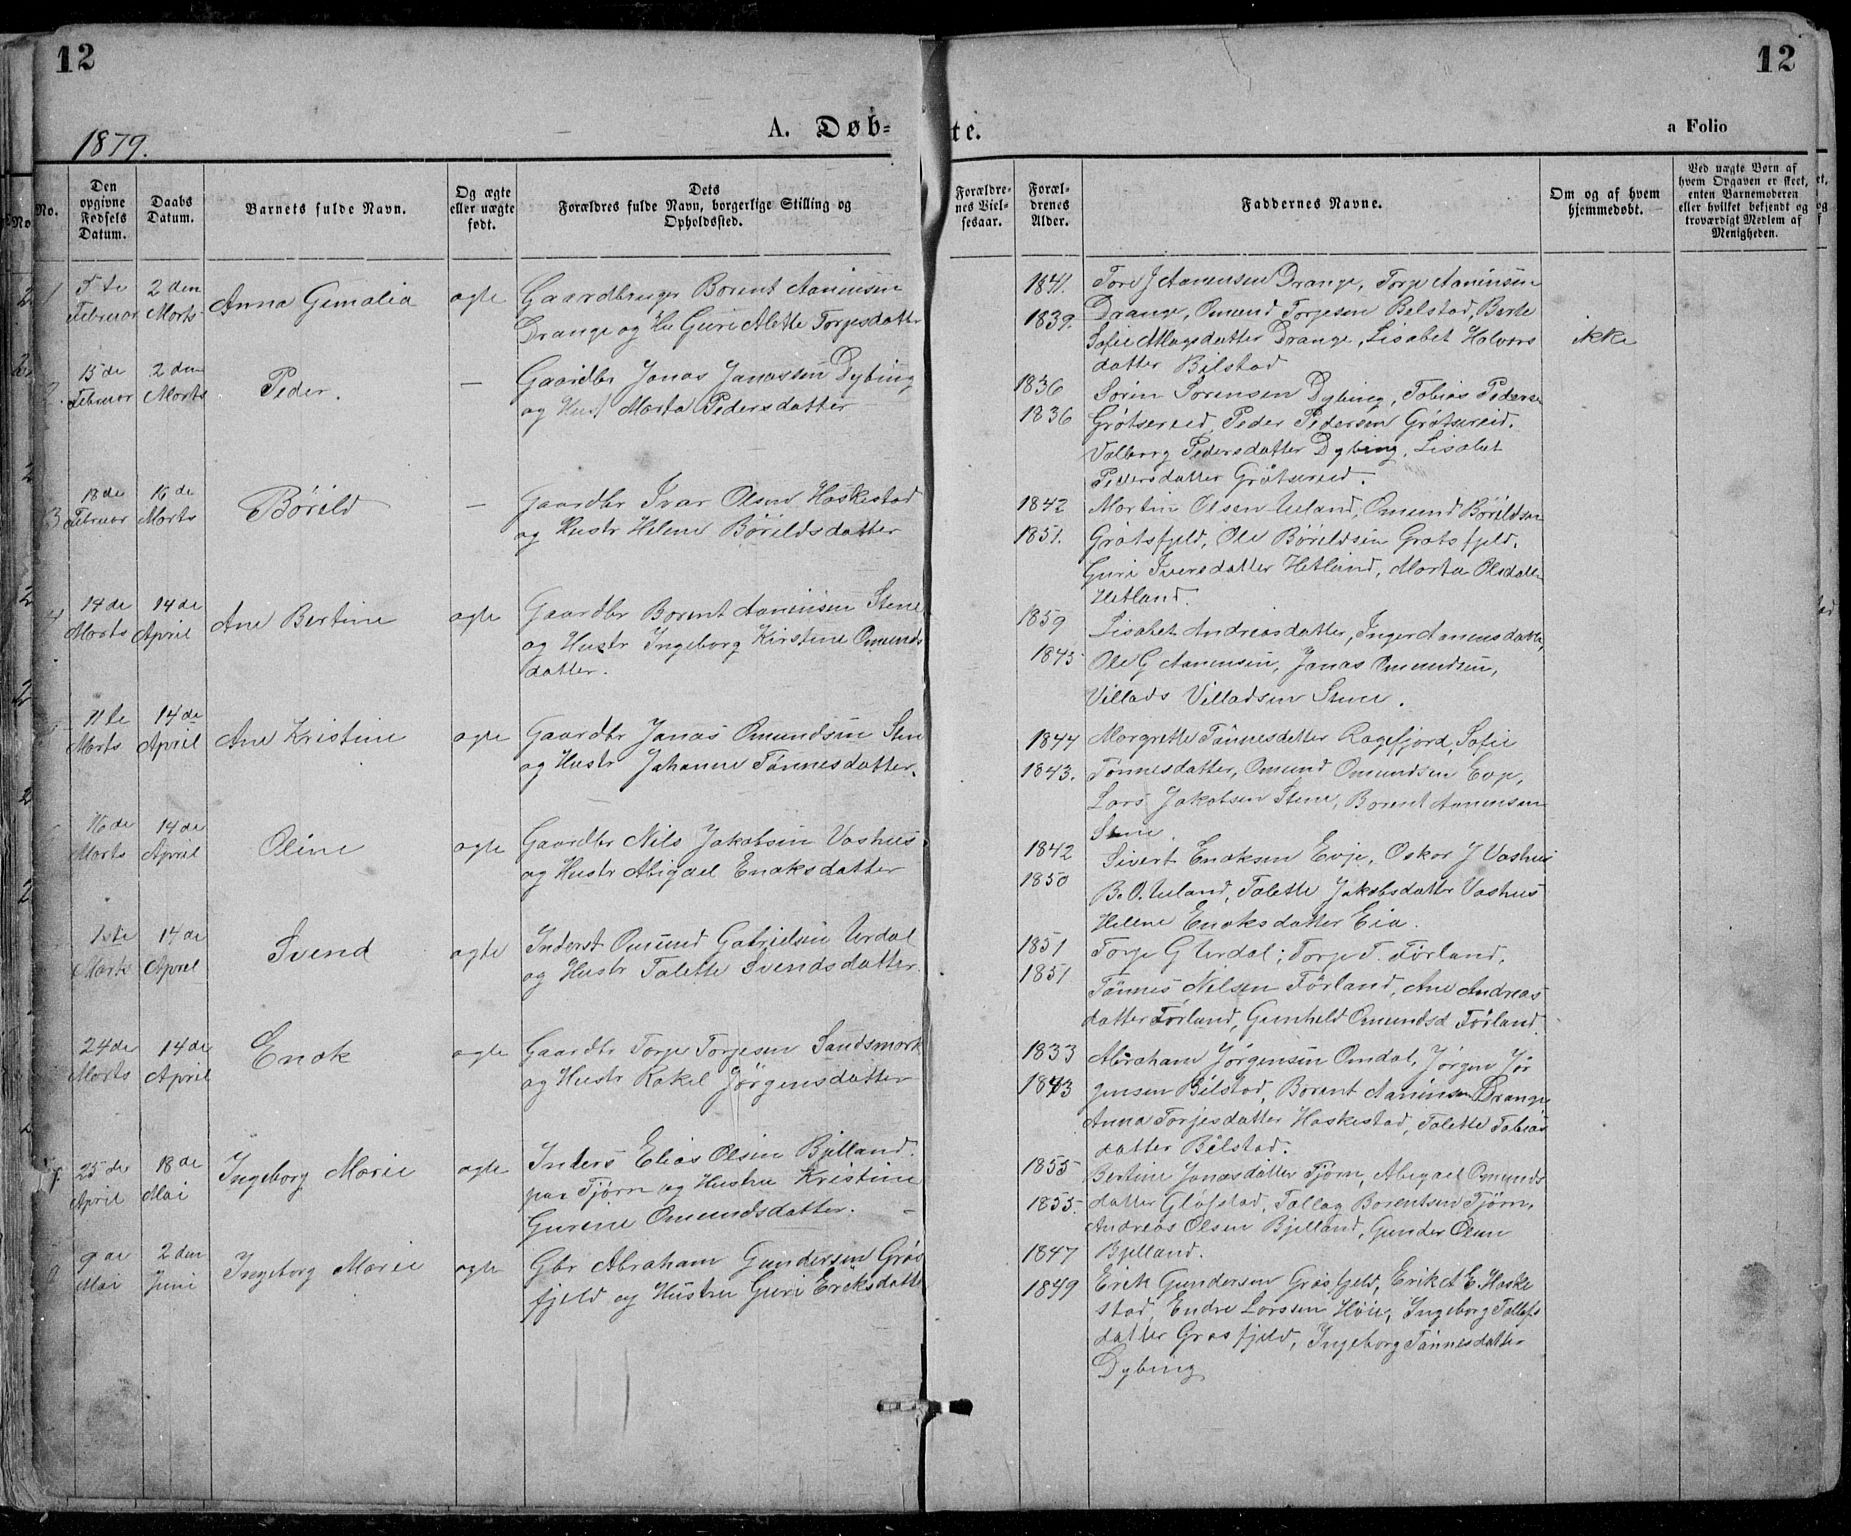 12
12
A. Døb=
te.
a Folio
1879.
No.
Den opgivne Fødsels Datum.
Daabs Datum.
Barnets fulde Navn.
Og ægte eller uægte født.
Dets Forældres fulde Navn, borgerlige Stilling og Opholdssted.
Forældrenes Vielsesaar.
Forældrenes Alder.
Faddernes Navne.
Om og af hvem hjemmedøbt.
Ved uægte Børn af hvem Opgaven er skeet, enten Barnemoderen eller hvilket bekjendt og troværdigt Medlem af Menigheden.
1
5te Februar
2den Morts
Anna Gemalia
ægte
Gaardbruger Borent Aanensen
Drange og Hu Guri Alette Torjesdatter
1841.
1839.
Tore J Aanensen Drange, Torje Aanensen
Drange, Omund Torjesen Belstad, Berte
Sofie Magsdatter Drange, Lisabet Halvors
datter Bilstad
ikke
2.
15de Februar
2den Morts
Peder.
—
Gaardbr Jonas Janassen Dybing
og Hust Marta Pedersdatter
1836
1836
Sørin Sørensen Dybing, Tobias Pederse
Grøtsereid, Peder Pedersen Grøtsereid.
Valborg Pedersdatter Dybing, Lisabet
Pedersdatter Grøtsereid.
3
18de Februar
16de Morts
Børild
—
Gaardbr Ivar Olsen Haskestad
og Hustr Helene Børildsdatter
1842
1851.
Martin Olsen Ueland, Omund Børildsen
Grøtsfjeld, Ole Børildsen Grøtsfjeld,
Guri Iversdatter Hetland, Marta Olsdatter
Hetland.
4
14de Morts
14de April
Ane Bertine
ægte
Gaardbr Borent Aanensen Stene
og Hustr Ingeborg Kirstine Omunds
datter.
1859
1845
Lisabet Andreasdatter, Inger Aanensdatter,
Ole G Aanensen, Jonas Omundsen,
Villads Villadsen Stene.
11te Morts
14de April
Ane Kristine
ægte
Gaardbr Jonas Omundsen Sten
og Hustr Johanne Tønnesdatter.
1844
1843.
Margrette Tønnesdatter Ragefjord, Sofie
Tønnesdatter, Omund Omundsen Evje,
Lars Jakobsen Stene, Borent Aanensen
Stene.
16de Morts
14de April
Oline
ægte
Gaardbr Nils Jakobsen Vashus
og Hustr Abigael Enoksdatter
1842
1850
Sivert Enoksen Evje, Oskar J Vashus
B. O. Ueland, Talette Jakobsdatter Vashus
Helene Enoksdatter Eia.
1ste Morts
14de April
Svend
ægte
Inderst Omund Gabrielsen Urdal
og Hustr Talette Svendsdatter.
1851
1851
Torje G Urdal; Torje T. Førland,
Tønnes Nilsen Førland, Ane Andreas
datter Førland, Gunheld Omundsd Førland
24de Morts
14de April
Enok
ægte
Gaardbr Torje Torjesen Sandsmark
og Hustr Rakel Jørgensdatter
1833
1843
Abraham Jørgensen Omdal, Jørgen Jør
gensen Bilstad, Borent Aanensen Drange
Anna Torjesdatter Haskestad, Talette Tobias
datter Bilstad.
25de April
18de Mai
Ingeborg Marie
ægte
Inders Elias Olsen Bjelland.
paa Tjørn og Hustru Kristine
Gurine Omundsdatter. —
1855
1855.
Bertine Jonasdatter Tjørn, Abigael Omunds
datter Gløpstad, Tallag Borentsen Tjørn,
Andreas Olsen Bjelland, Gunder Olsen
Bjelland.
9de Mai
2den Juni
Ingeborg Marie
ægte
Gbr Abraham Gundersen Grøs
fjeld og Hustru Guri Eriksdatte
1847
1849
Erik Gundersen Grøsfjeld, Erik A E. Haske
stad, Endre Larssen Høie, Ingeborg Tallefs
datter Grøsfjeld, Ingeborg Tønnesdatter
Dybing